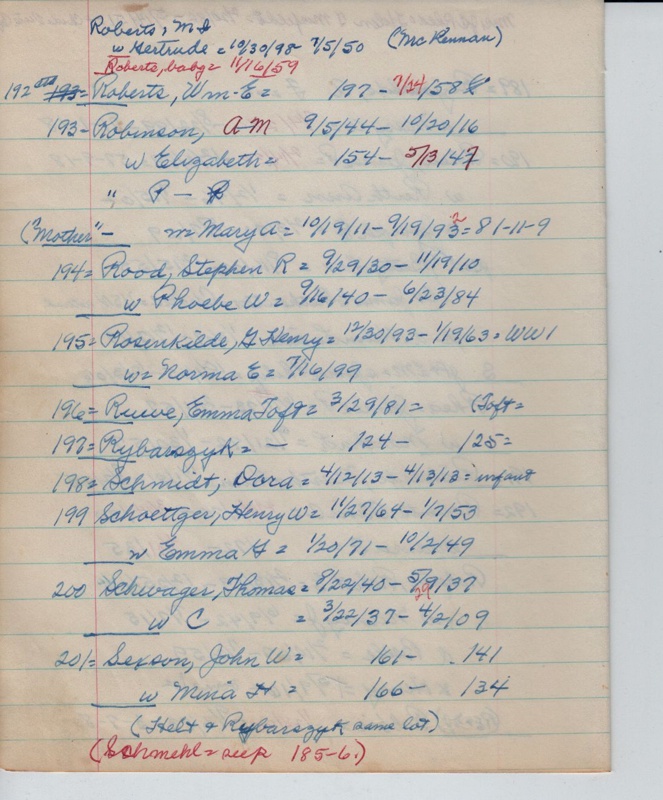 Roberts, M I
w Gertrude = 10/30/98 - 7/5/50 (McKennan)
Roberts, baby = 11/16/59
192 193 = Roberts, Wm-E = /97 - 7/14/58
193 - Robinson, A-M 9/5/44 - 10/20/16
w Elizabeth = /54 - 5/13/47
" R - R
("Mother" - m = Mary A = 10/19/11 - 9/19/93 2 = 81-11-9
194 = Rood, Stephen R = 9/29/30 - 11/19/10
w Phoebe W = 9/16/40 - 6/23/84
195 = Rosenkilde, G Henry = 12/30/93 - 1/19/63 = WW1
w = Norma E = 7/16/99
196 = Ruwe, Emma Toft = 3/29/81 = (Toft =
197 = Rybarszyk = - /24 - /25 =
198 = Schmidt, Dora = 4/12/13 - 4/13/13 = infant
199 Schoettger, Henry W = 11/27/64 - 1/7/53
w Emma G = 1/20/71 - 10/2/49
200 Schwager, Thomas = 8/22/40 - 5/9/37 29
w C = 3/22/37 - 4/2/09
201 = Sexson, John W = /61 - /41
w Mina H = /66 - /34
(Helt & Rybarszyk same lot)
(Schmehl = seep 185-6.)